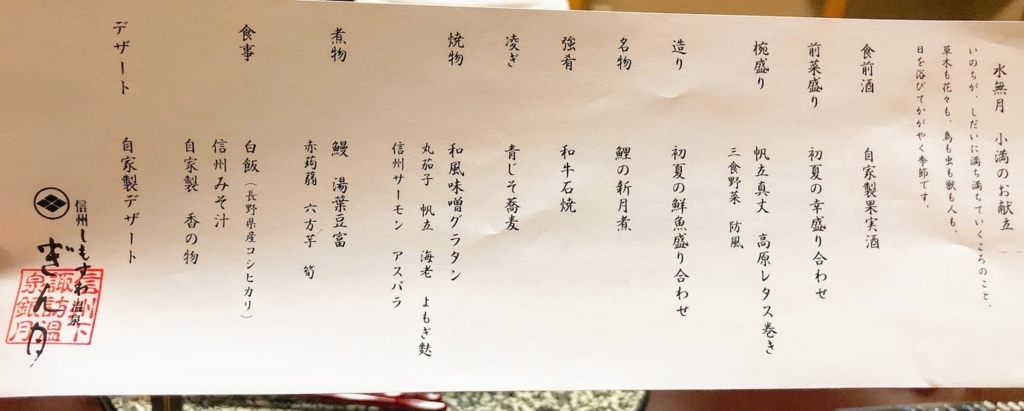 水無月　小満のお献立
いのちが、しだいに満ち満ちていくころのこと、
草木も花々も、鳥も虫も獣も人も、
日を浴びてかがやく季節です。
食前酒　自家製果実酒
前菜盛り　初夏の幸盛り合わせ
椀盛り　帆立真丈　高原レタス巻き
三食野菜　防風
造り　初夏の鮮魚盛り合わせ
名物　鯉の新月煮
強肴　和牛石焼
凌ぎ　青じそ蕎麦
焼物　和風味噌グラタン
丸茄子　帆立　海老　よもぎ麩
信州サーモン　アスパラ
煮物　鰻　湯葉豆富
赤蒟蒻　六方芋　筍
食事　白飯（長野県産コシヒカリ）
信州みそ汁
自家製　香の物
デザート　自家製デザート
信州しもすわ温泉
ぎん月
信州下
諏訪温
泉銀月